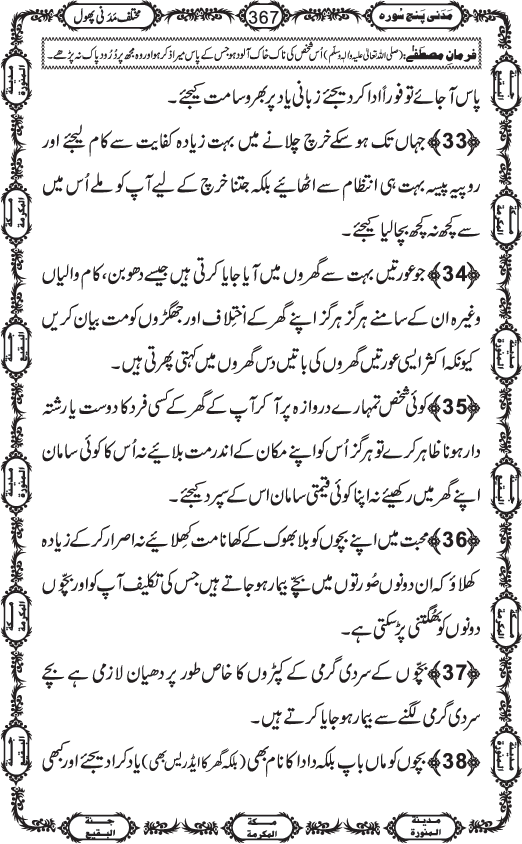 مَدَنی پنج سُورہ
367
مختلف مَدَنی پھول
فرمانِ مصطَفٰے: (صلی اللہ تعالیٰ علیہ واٰلہٖ وسلّم) اُس شخص کی ناک خاک آلود ہو جس کے پاس میرا ذکر ہو اور وہ مجھ پر دُرُود پاک نہ پڑھے۔
پاس آ جائے تو فوراً ادا کر دیجئے زبانی یاد پر بھروسا مت کیجئے۔
﴿33﴾ جہاں تک ہو سکے خرچ چلانے میں بہت زیادہ کفایت سے کام لیجئے اور
روپیہ پیسہ بہت ہی انتظام سے اٹھائیے بلکہ جتنا خرچ کے لیے آپ کو ملے اُس میں
سے کچھ نہ کچھ بچا لیا کیجئے۔
﴿34﴾ جو عورتیں بہت سے گھروں میں آیا جایا کرتی ہیں جیسے دھوبن، کام والیاں
وغیرہ ان کے سامنے ہرگز ہرگز اپنے گھر کے اختِلاف اور جھگڑوں کو مت بیان کریں
کیونکہ اکثر ایسی عورتیں گھروں کی باتیں دس گھروں میں کہتی پھرتی ہیں۔
﴿35﴾ کوئی شخص تمہارے دروازہ پر آ کر آپ کے گھر کے کسی فرد کا دوست یا رشتہ
دار ہونا ظاہر کرے تو ہرگز اُس کو اپنے مکان کے اندر مت بلائیے نہ اُس کا کوئی سامان
اپنے گھر میں رکھیئے نہ اپنا کوئی قیمتی سامان اس کے سپرد کیجئے۔
﴿36﴾ محبت میں اپنے بچوں کو بلا بھوک کے کھانا مت کھلائیے نہ اصرار کر کے زیادہ
کھلاؤ کہ ان دونوں صُورتوں میں بچّے بیمار ہو جاتے ہیں جس کی تکلیف آپ کو اور بچّوں
دونوں کو بھُگتنی پڑ سکتی ہے۔
﴿37﴾ بچّوں کے سردی گرمی کے کپڑوں کا خاص طور پر دھیان لازمی ہے بچے
سردی گرمی لگنے سے بیمار ہو جایا کرتے ہیں۔
﴿38﴾ بچوں کو ماں باپ بلکہ دادا کا نام بھی (بلکہ گھر کا ایڈریس بھی) یاد کرا دیجئے اور کبھی
مدینۃ المنورۃ
مکۃ المکرمۃ
جنۃ البقیع
مدینۃ المنورۃ
مکۃ المکرمۃ
جنۃ البقیع
مکۃ المکرمۃ
مدینۃ المنورۃ
جنۃ البقیع
مکۃ المکرمۃ
مدینۃ المنورۃ
جنۃ البقیع
مکۃ المکرمۃ
مدینۃ المنورۃ